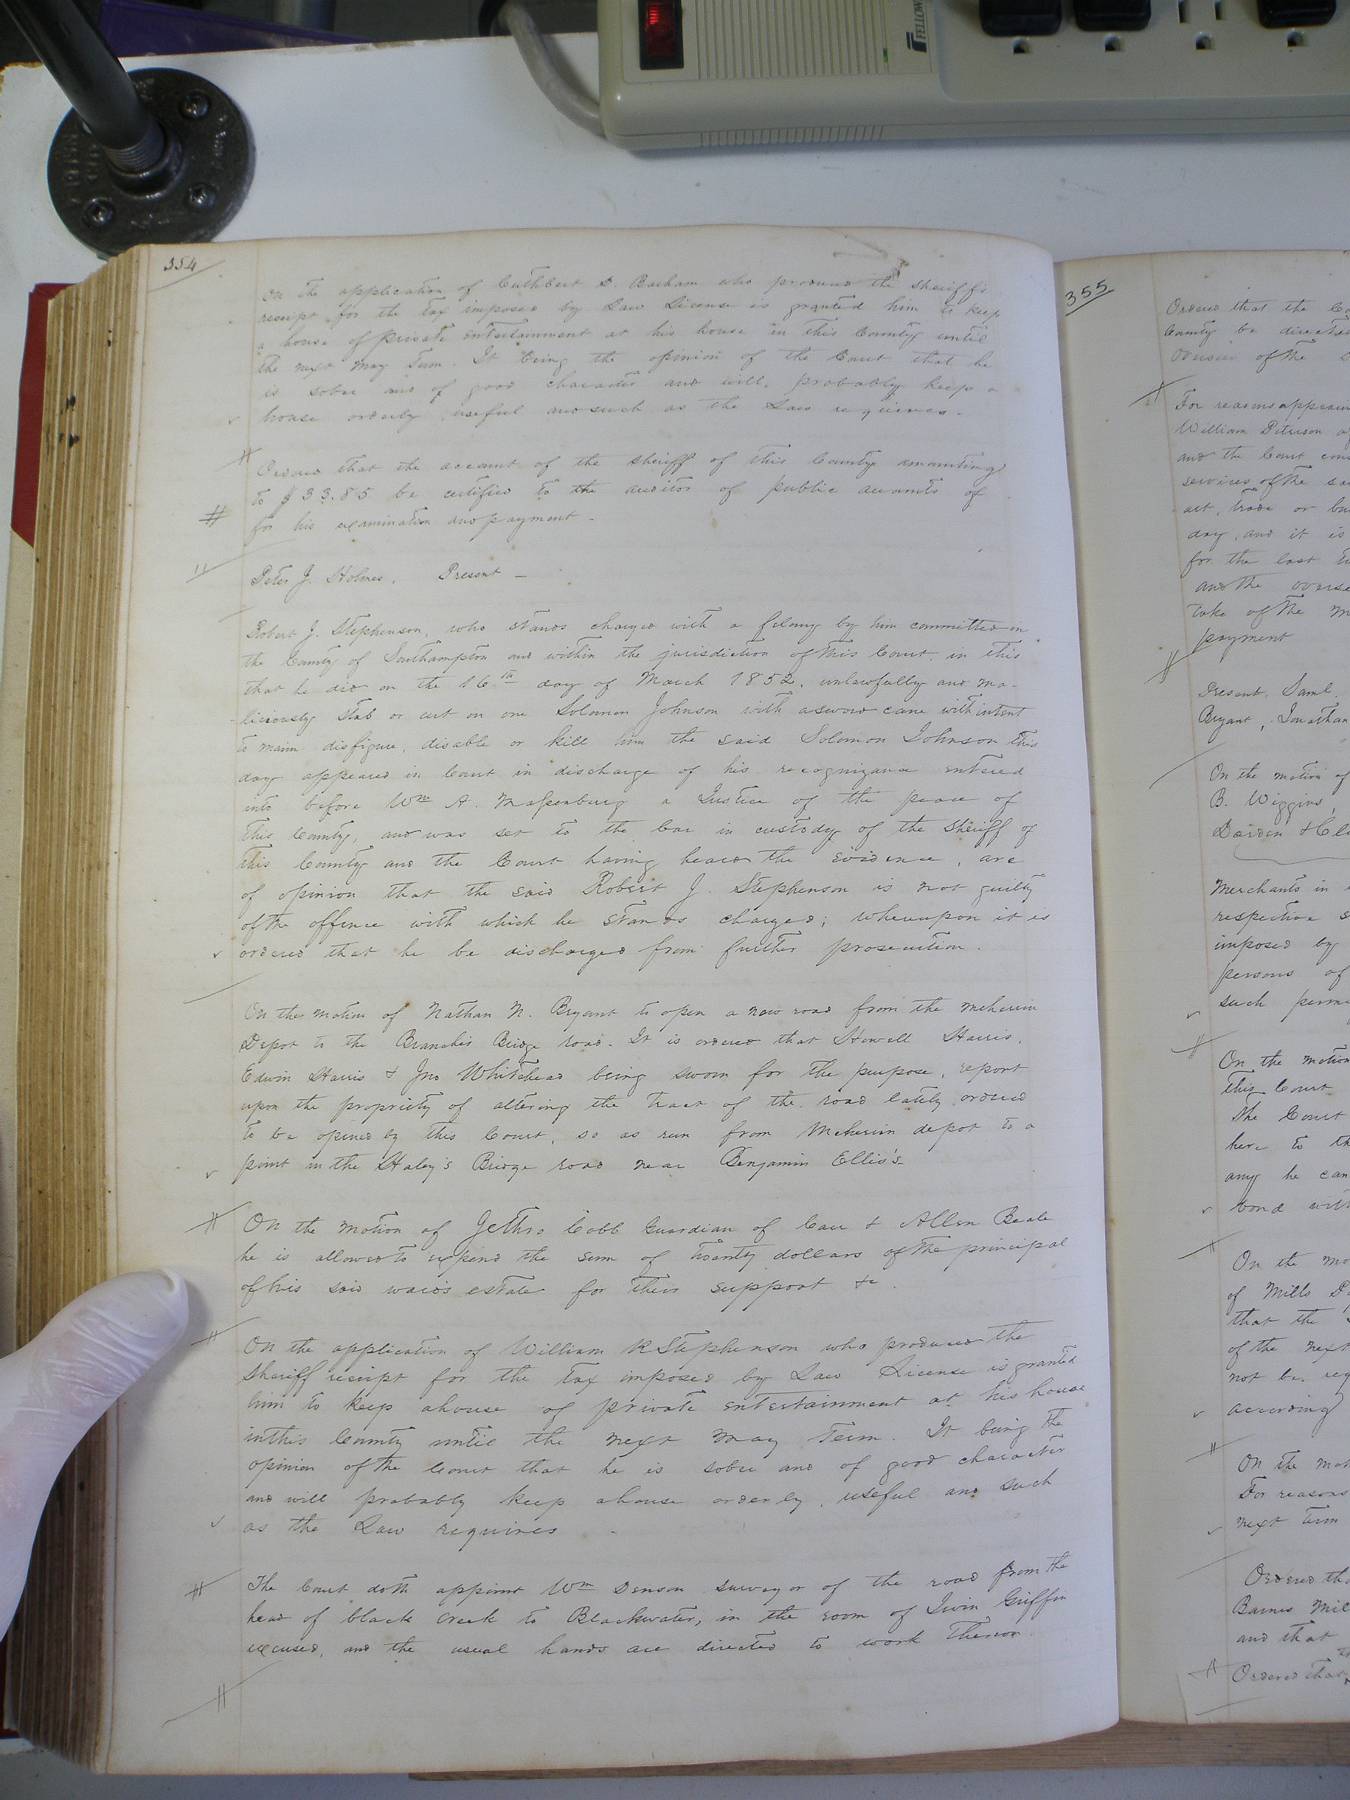 354
On the application of Cuthbert D. Barham who produced the Sheriff's
receipt for the tax imposed by Law License is granted him to keep
a house of private entertainment at his house in this County until
the next May Term. It being the opinion of the Court that he
is sober and of good character and will, probably keep a
house orderly useful and such as the Law requires.
Ordered that the account of the sheriff of this County amounting
to $33.85 be certified to the auditor of public accounts of
for his examination and payment.
Peter J. Holmes. Present —
Robert J. Stephenson, who stands charged with a felony by him committed in
the County of Southampton and within the jurisdiction of this Court. in this
that he did on the 16th day of March 1852, unlawfully and ma-
liciously stab or cut on one Solomon Johnson with a sword cane with intent
to maim disfigure, disable or kill him the said Solomon Johnson this
day appeared in Court in discharge of his recognizance entered
into before Wm A. Massenburg a Justice of the peace of
this County, and was set to the bar in custody of the Sheriff of
this County and the Court having heard the evidence, are
of opinion that the said Robert J. Stephenson is not guilty
of the offence with which he stands charged; whereupon it is
ordered that he be discharged from further prosecution.
On the motion of Nathan N. Bryant to open a new road from the Meherrin
Depot to the Branch's Bridge road. It is ordered that Howell Harris,
Edwin Harris & Jno Whitehead being sworn for the purpose, report
upon the propriety of altering the tract of the road lately ordered
to be opened by this Court, so as run from Meherrin depot to a
point in the Haley's Bridge road near Benjamin Ellis's
On the motion of Jethro Cobb Guardian of & Allen Beale
he is allowed to expend the sum of twenty dollars of the principal
of his said ward's estate for their support &c.
On the application of William R Stephenson who produced the
Sheriff receipt for the tax imposed by Law License is granted
him to keep a house of private entertainment at his house
in this County until the next May Term. It being the
opinion of the Court that he is sober and of good character
and will probably keep a house orderly, useful and such
as the Law requires
The Court doth appoint Wm Denson surveyor of the road from the
head of black Creek to Blackwater, in the room of Irvin Griffin
excused, and the usual hands are directed to work thereon.
355
Ordered that the
County be directed
of the
For reasons appearing
William Peterson
and the Court
services of the
art, trade or
day, and it is
for the last
and the
take of the
payment
Present. Saml.
Bryant, Jonathan
On the motion of
B. Wiggins,
Darden &
Merchants in
respective
imposed by
persons of
such
On the motion
this Court
The Court
here to
any he can
bond with
On the
of Mills
that the
of the next
not be
according
On the
For reasons
next term
Ordered
Barnes
and that
Ordered that
FELLOW